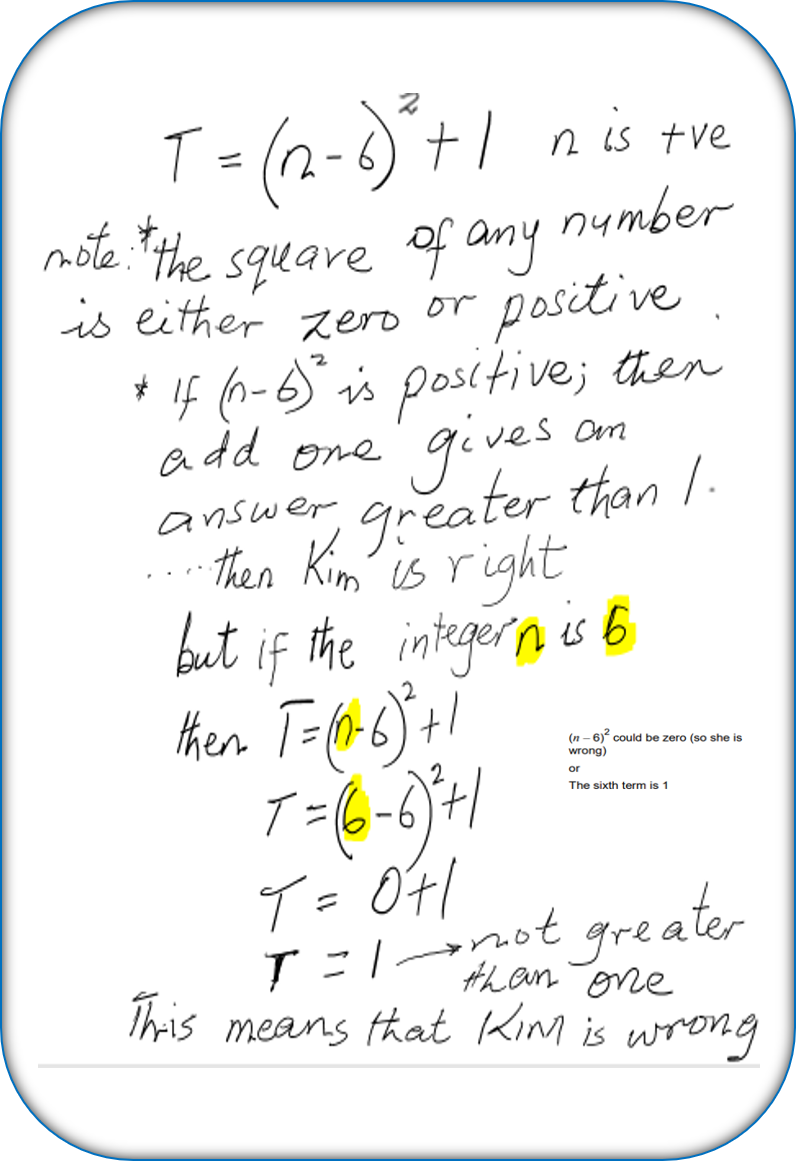 T = (n - 6)² + 1 n is +ve
note: * the square of any number
is either zero or positive.
* If (n-6)² is positive; then
add one gives an
answer greater than 1.
.....then Kim is right
but if the integer n is 6
then T = (n-6)² + 1
(n – 6)² could be zero (so she is
wrong)
or
The sixth term is 1
T = (6 - 6)² + 1
T = 0+1
T = 1 → not greater
than one
This means that KIM is wrong